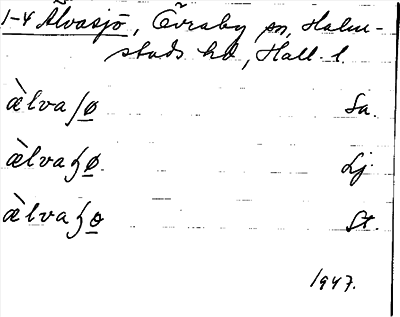 1-4 Älvasjö, Övraby sn, Halm-
stads hd, Hall. l.
æ̀lvaʃø̱ Sa.
æ̀lvaɧø̱ Lj.
æ̀lvaɧo̱ St.
1947.